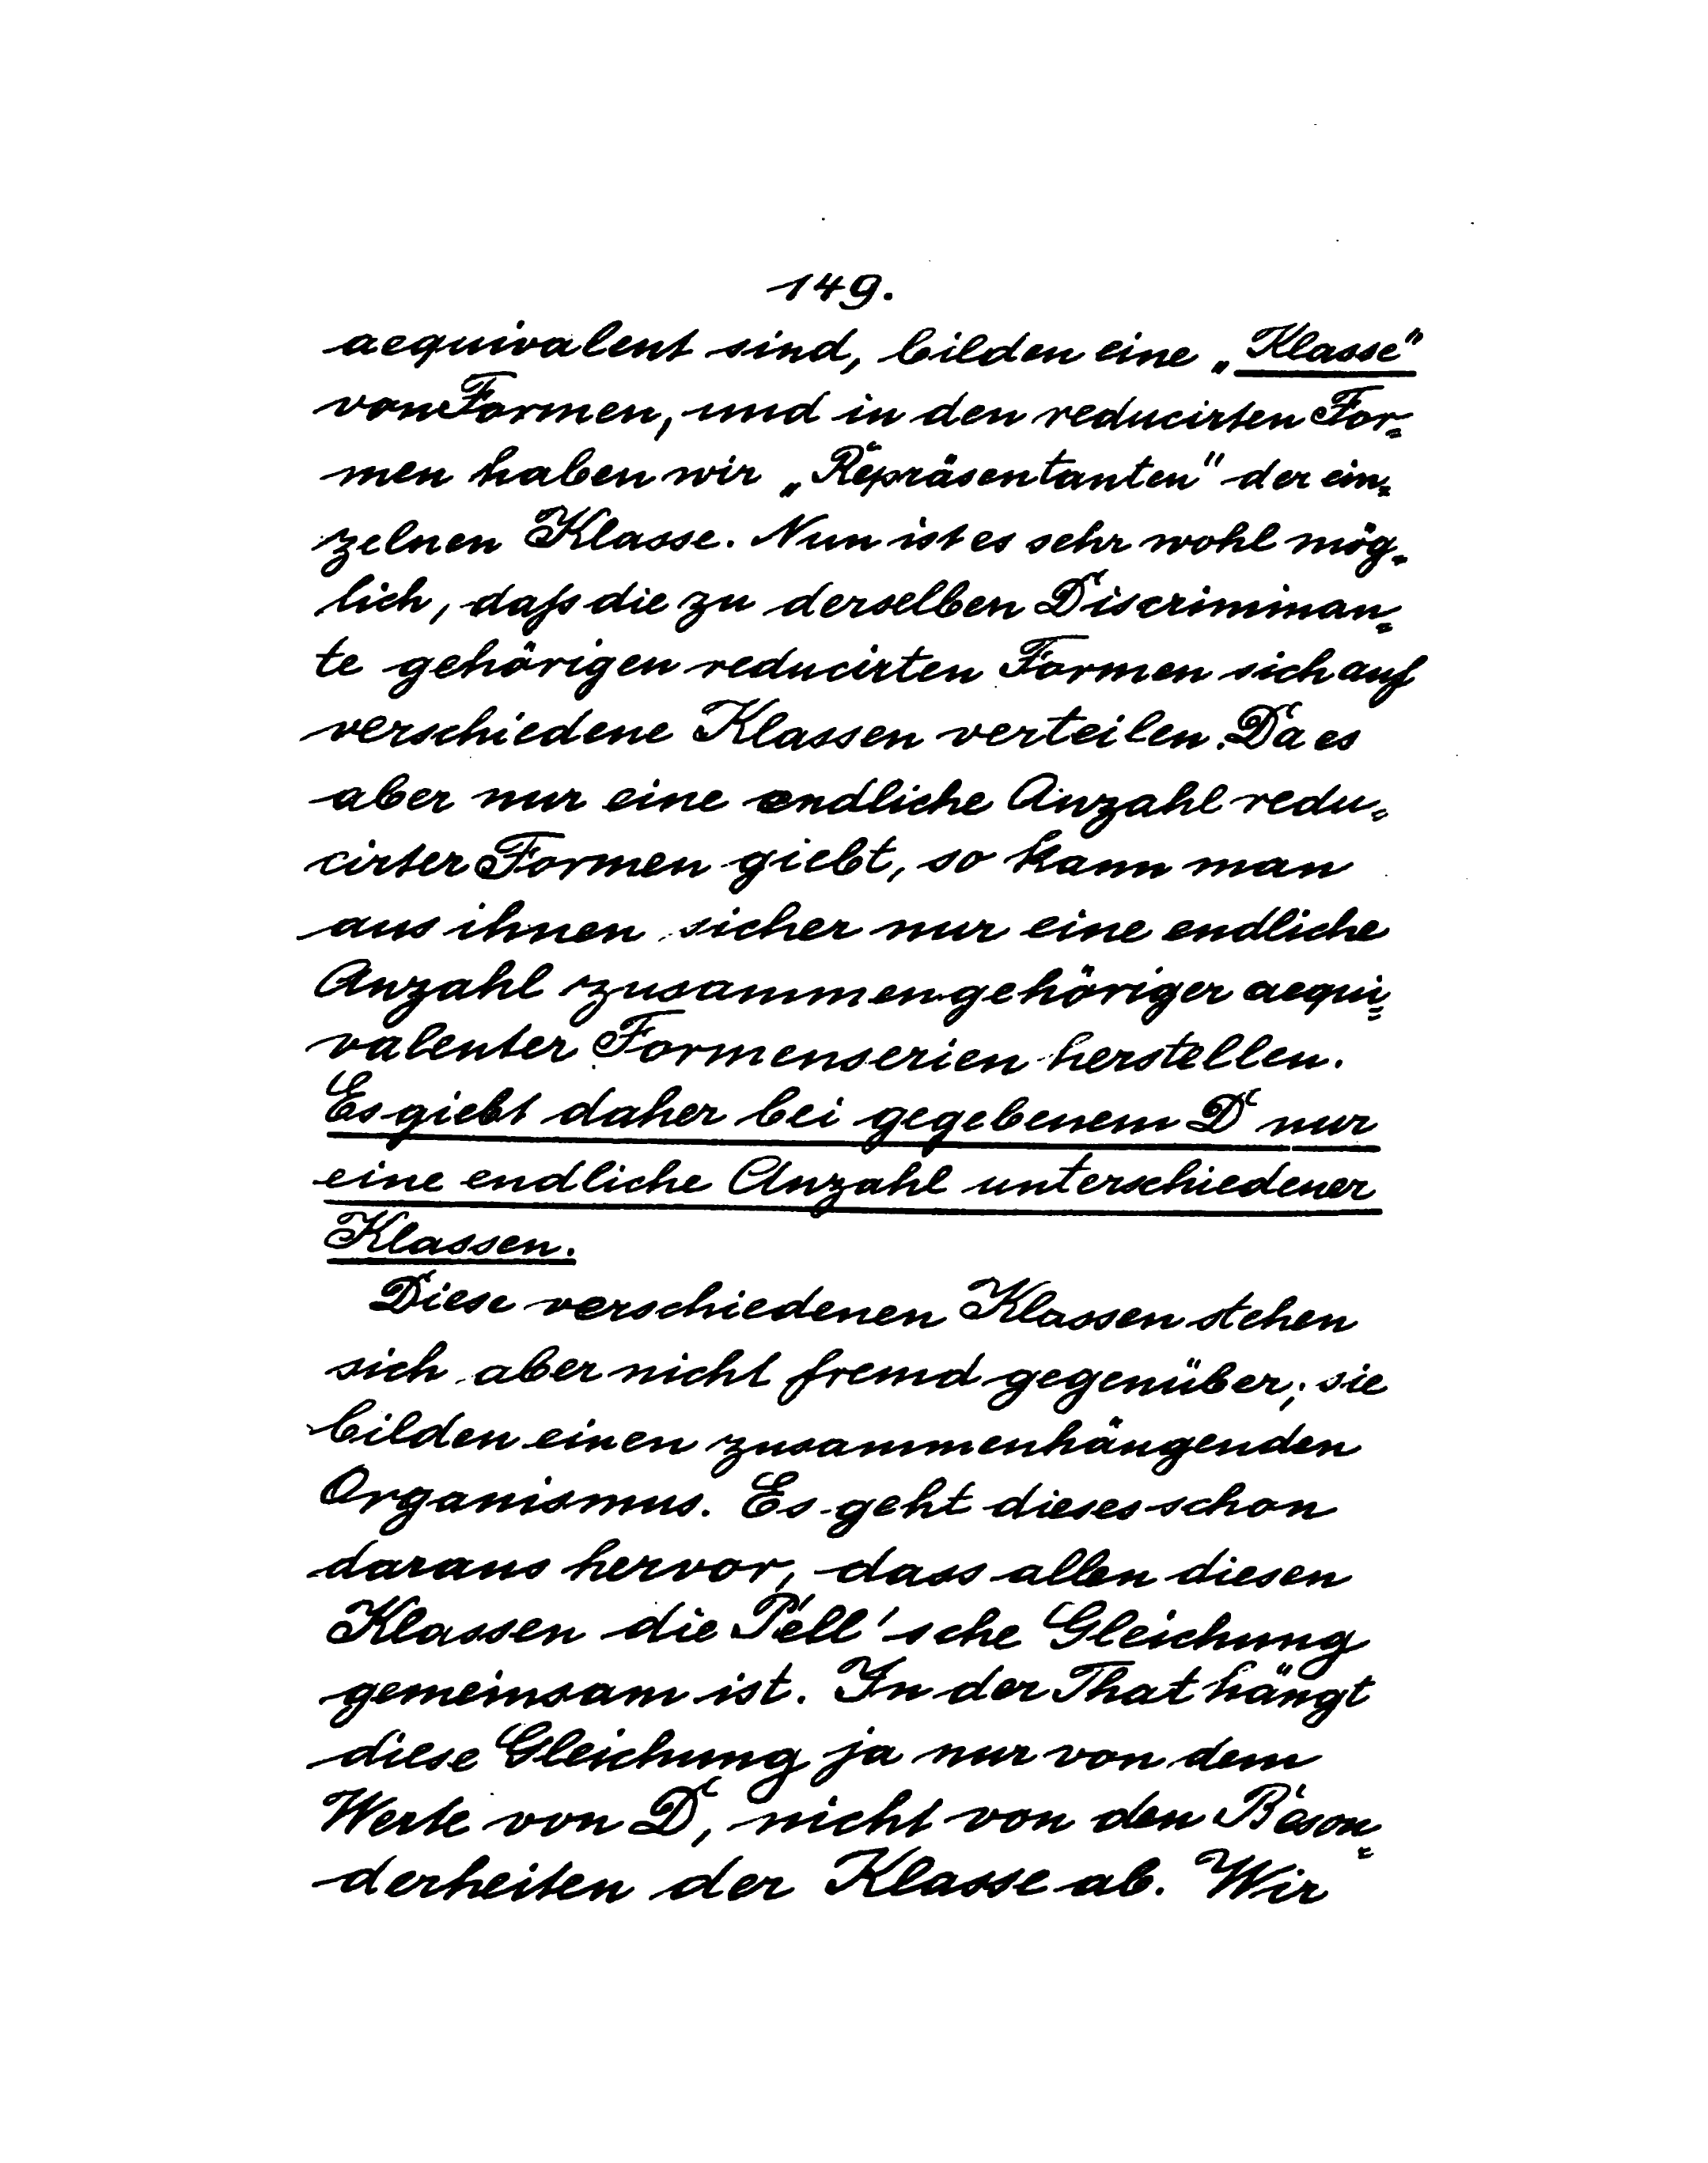 149.
aequivalent sind, bilden eine „Klasse"
von Formen, und in den reducirten For=
men haben wir „Repräsentanten" der ein=
zelnen Klasse. Nun ist es sehr wohl mög=
lich, daß die zu derselben Discriminan=
te gehörigen reducirten Formen sich auf
verschiedene Klassen verteilen. Da es
aber nur eine endliche Anzahl redu=
cirter Formen giebt, so kann man
aus ihnen sicher nur eine endliche
Anzahl zusammengehöriger aequi=
valenter Formenserien herstellen.
Es giebt daher bei gegebenem D nur
eine endliche Anzahl unterschiedener
Klassen.
Diese verschiedenen Klassen stehen
sich aber nicht fremd gegenüber; sie
bilden einen zusammenhängenden
Organismus. Es geht dieses schon
daraus hervor, dass allen diesen
Klassen die Pell'sche Gleichung
gemeinsam ist. In der That hängt
diese Gleichung ja nur von dem
Werte von D, nicht von den Beson=
derheiten der Klasse ab. Wir